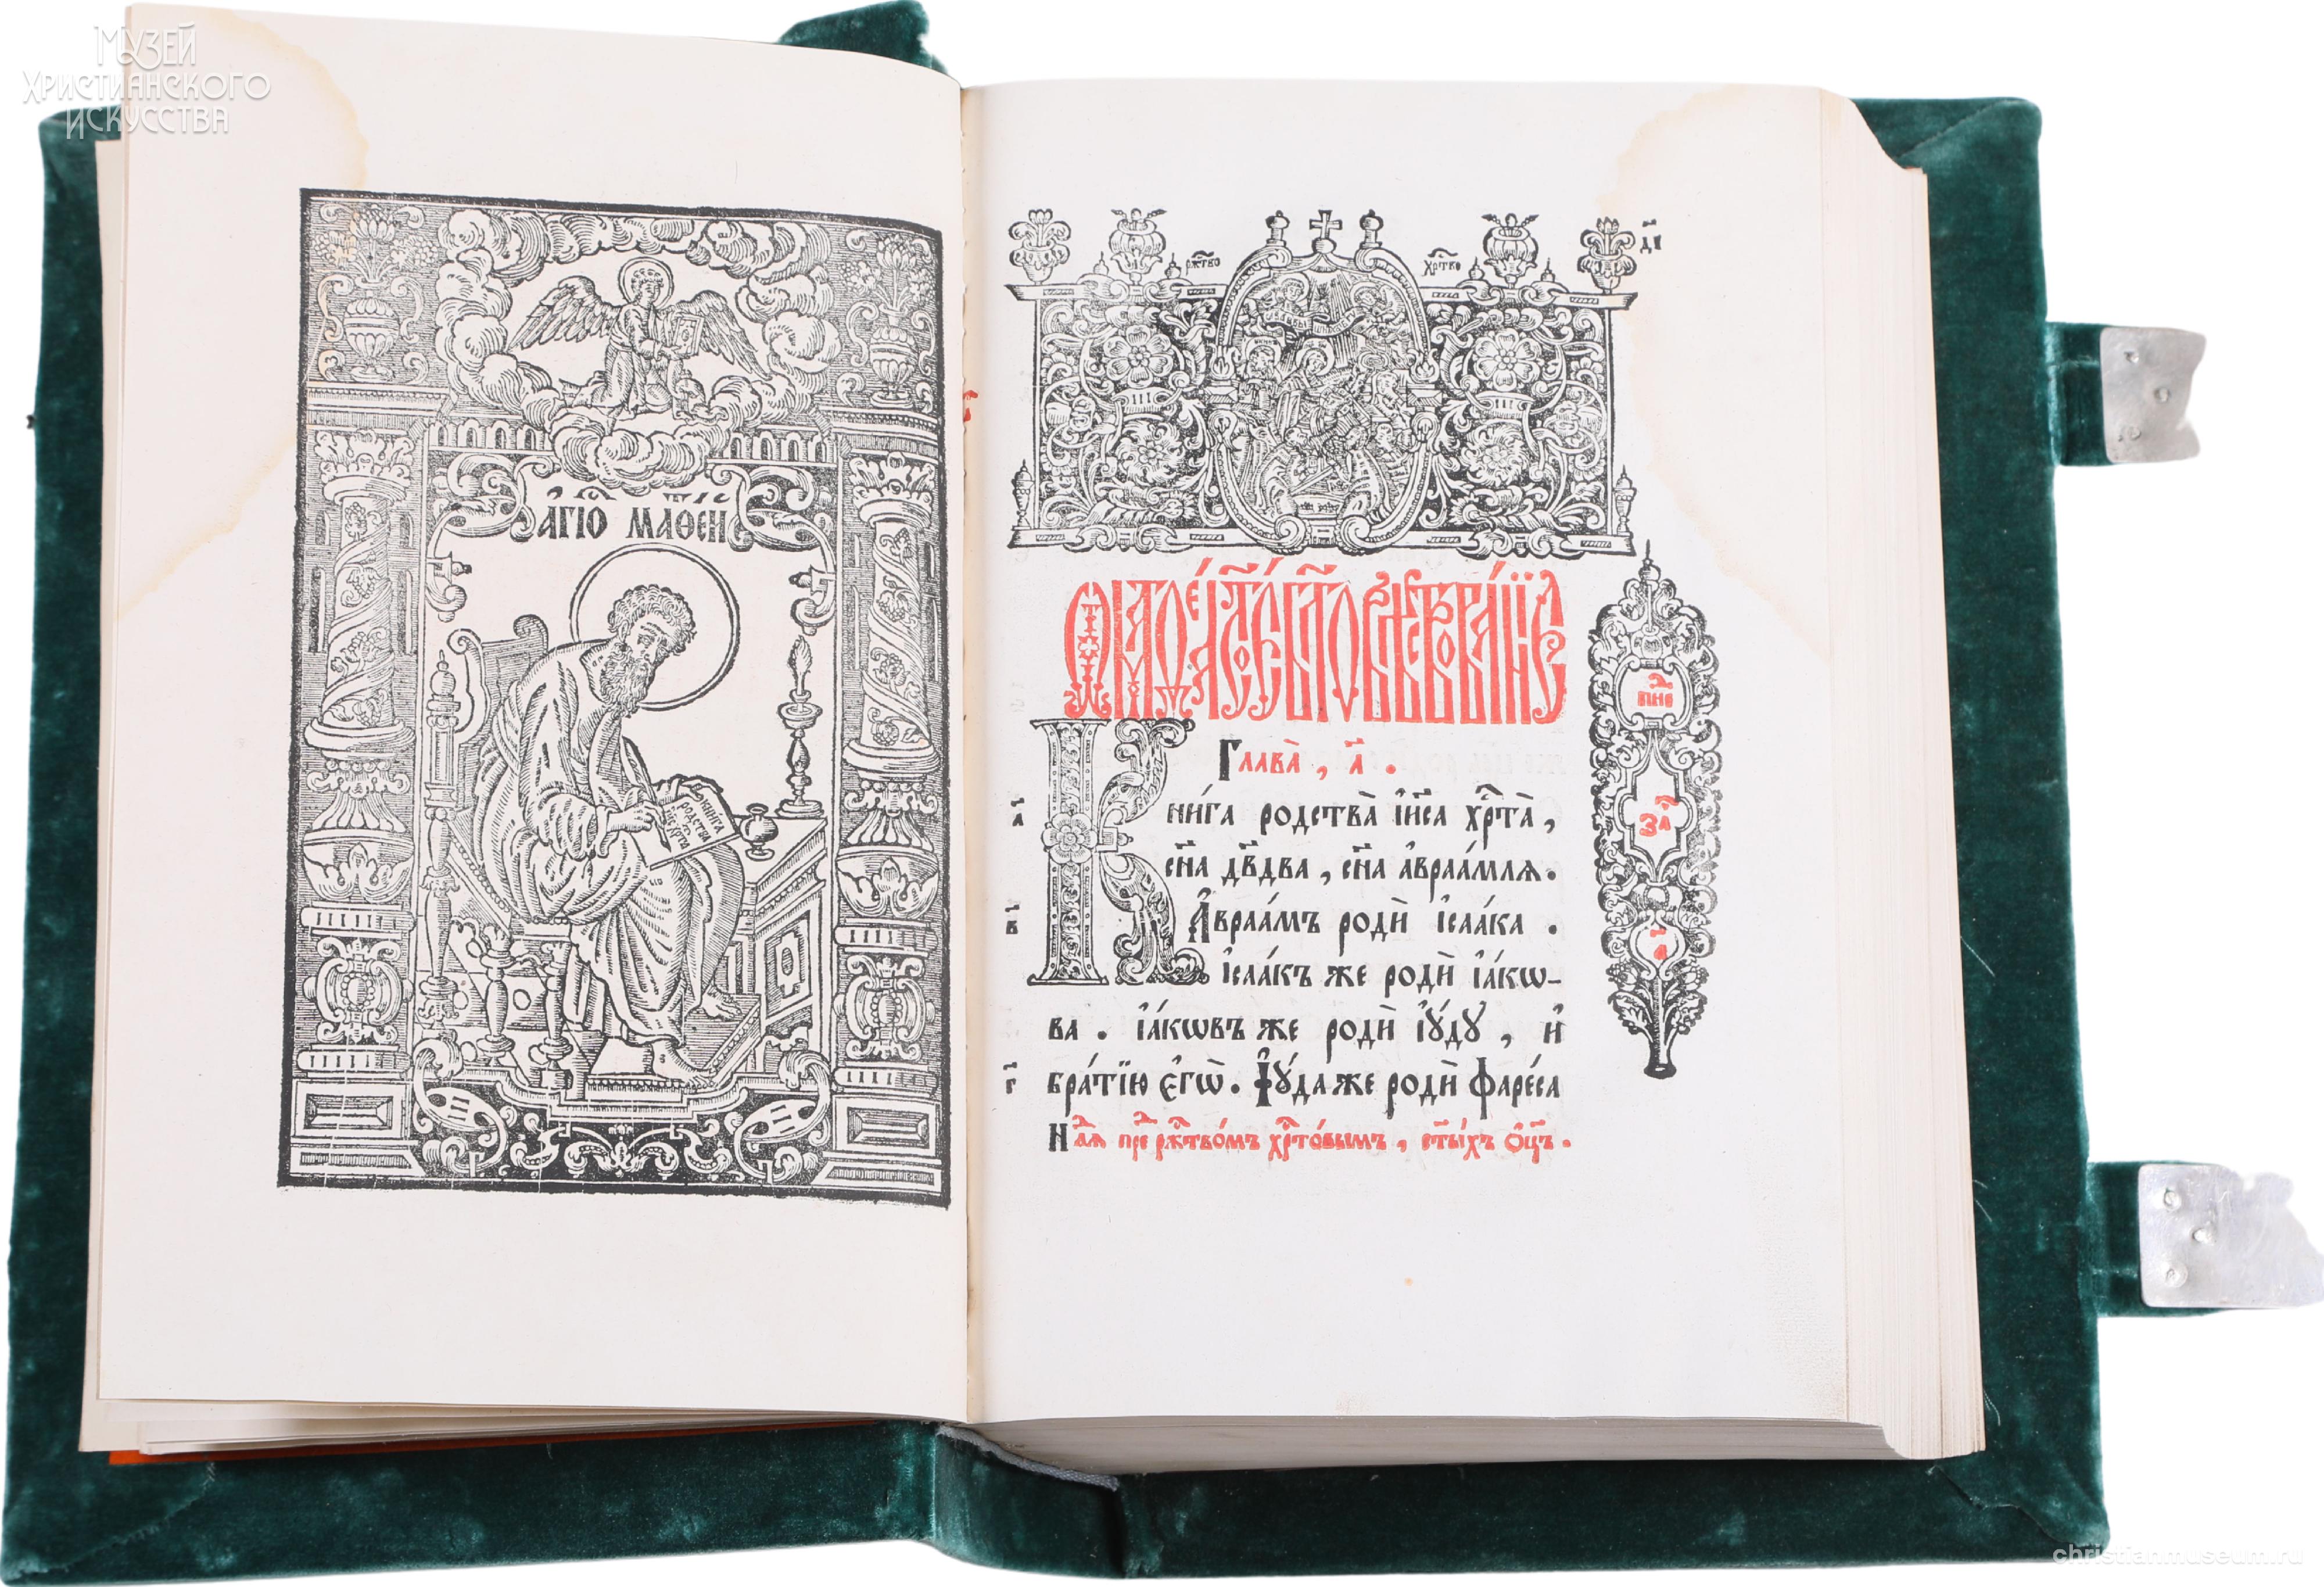 Музей
Христианского
Искусства
А҆́ГІО МАѲЕ́Й
книга
родства
і҃с
хр҃то
рж҃тво
хр҃тво
Глава̀, а҃.
а҃
Кни́га родства̀ і҆и҃са хр҃та̀,
сн҃а дв҃два, сн҃а а҆враа́мля.
в҃
А҆враа́мъ родѝ і҆саа́ка.
І҆саа́къ же родѝ і҆а́кѡ-
ва. І҆а́кѡвъ же родѝ і҆ꙋ́дꙋ, и҆
г҃
бра́тїю є҆гѡ̀. І҆ꙋ́да же родѝ фаре́са
Нл҃ѧ пре рж҃тво́мъ хр҃то́вымъ, ст҃ы́хъ ѻ҆ц҃ъ.
за҃
а҃
christianmuseum.ru